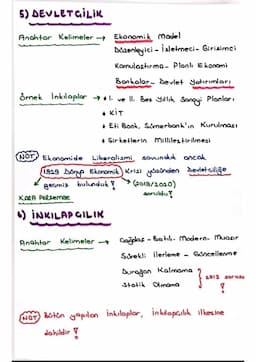 5) DEVLETÇİLİK
Anahtar Kelimeler → Ekonomik Model
Düzenleyici - İşletmeci - Girişimci
Kamulaştırma - Planlı Ekonomi
Bankalar - Devlet Yatırımları
Örnek İnkılaplar → * I. ve II. Beş Yıllık Sanayi Planları
* KİT
* Eti Bank, Sümerbank'ın Kurulması
* Şirketlerin Millileştirilmesi
NOT) Ekonomide Liberalizmi savunduk ancak
1929 Dünya Ekonomik Krizi yüzünden Devletçiliğe
geçmiş bulunduk! (2018/2020)
KARA PERŞEMBE soruldu!
6) İNKILAPÇILIK
Anahtar Kelimeler → Çağdaş - Batılı - Modern - Muasır
Sürekli İlerleme - Güncellenme
Durağan Kalmama
Statik Olmama 2013 sorusu
NOT) Bütün yapılan inkılaplar, inkılapçılık ilkesine
dahildir!